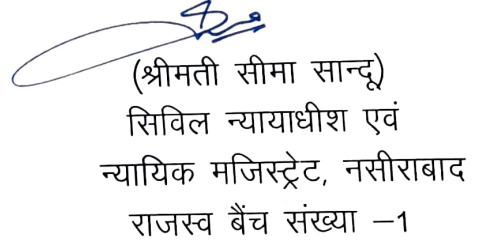 (श्रीमती सीमा सान्दू)
सिविल न्यायाधीश एवं
न्यायिक मजिस्ट्रेट, नसीराबाद
राजस्व बैंच संख्या –1